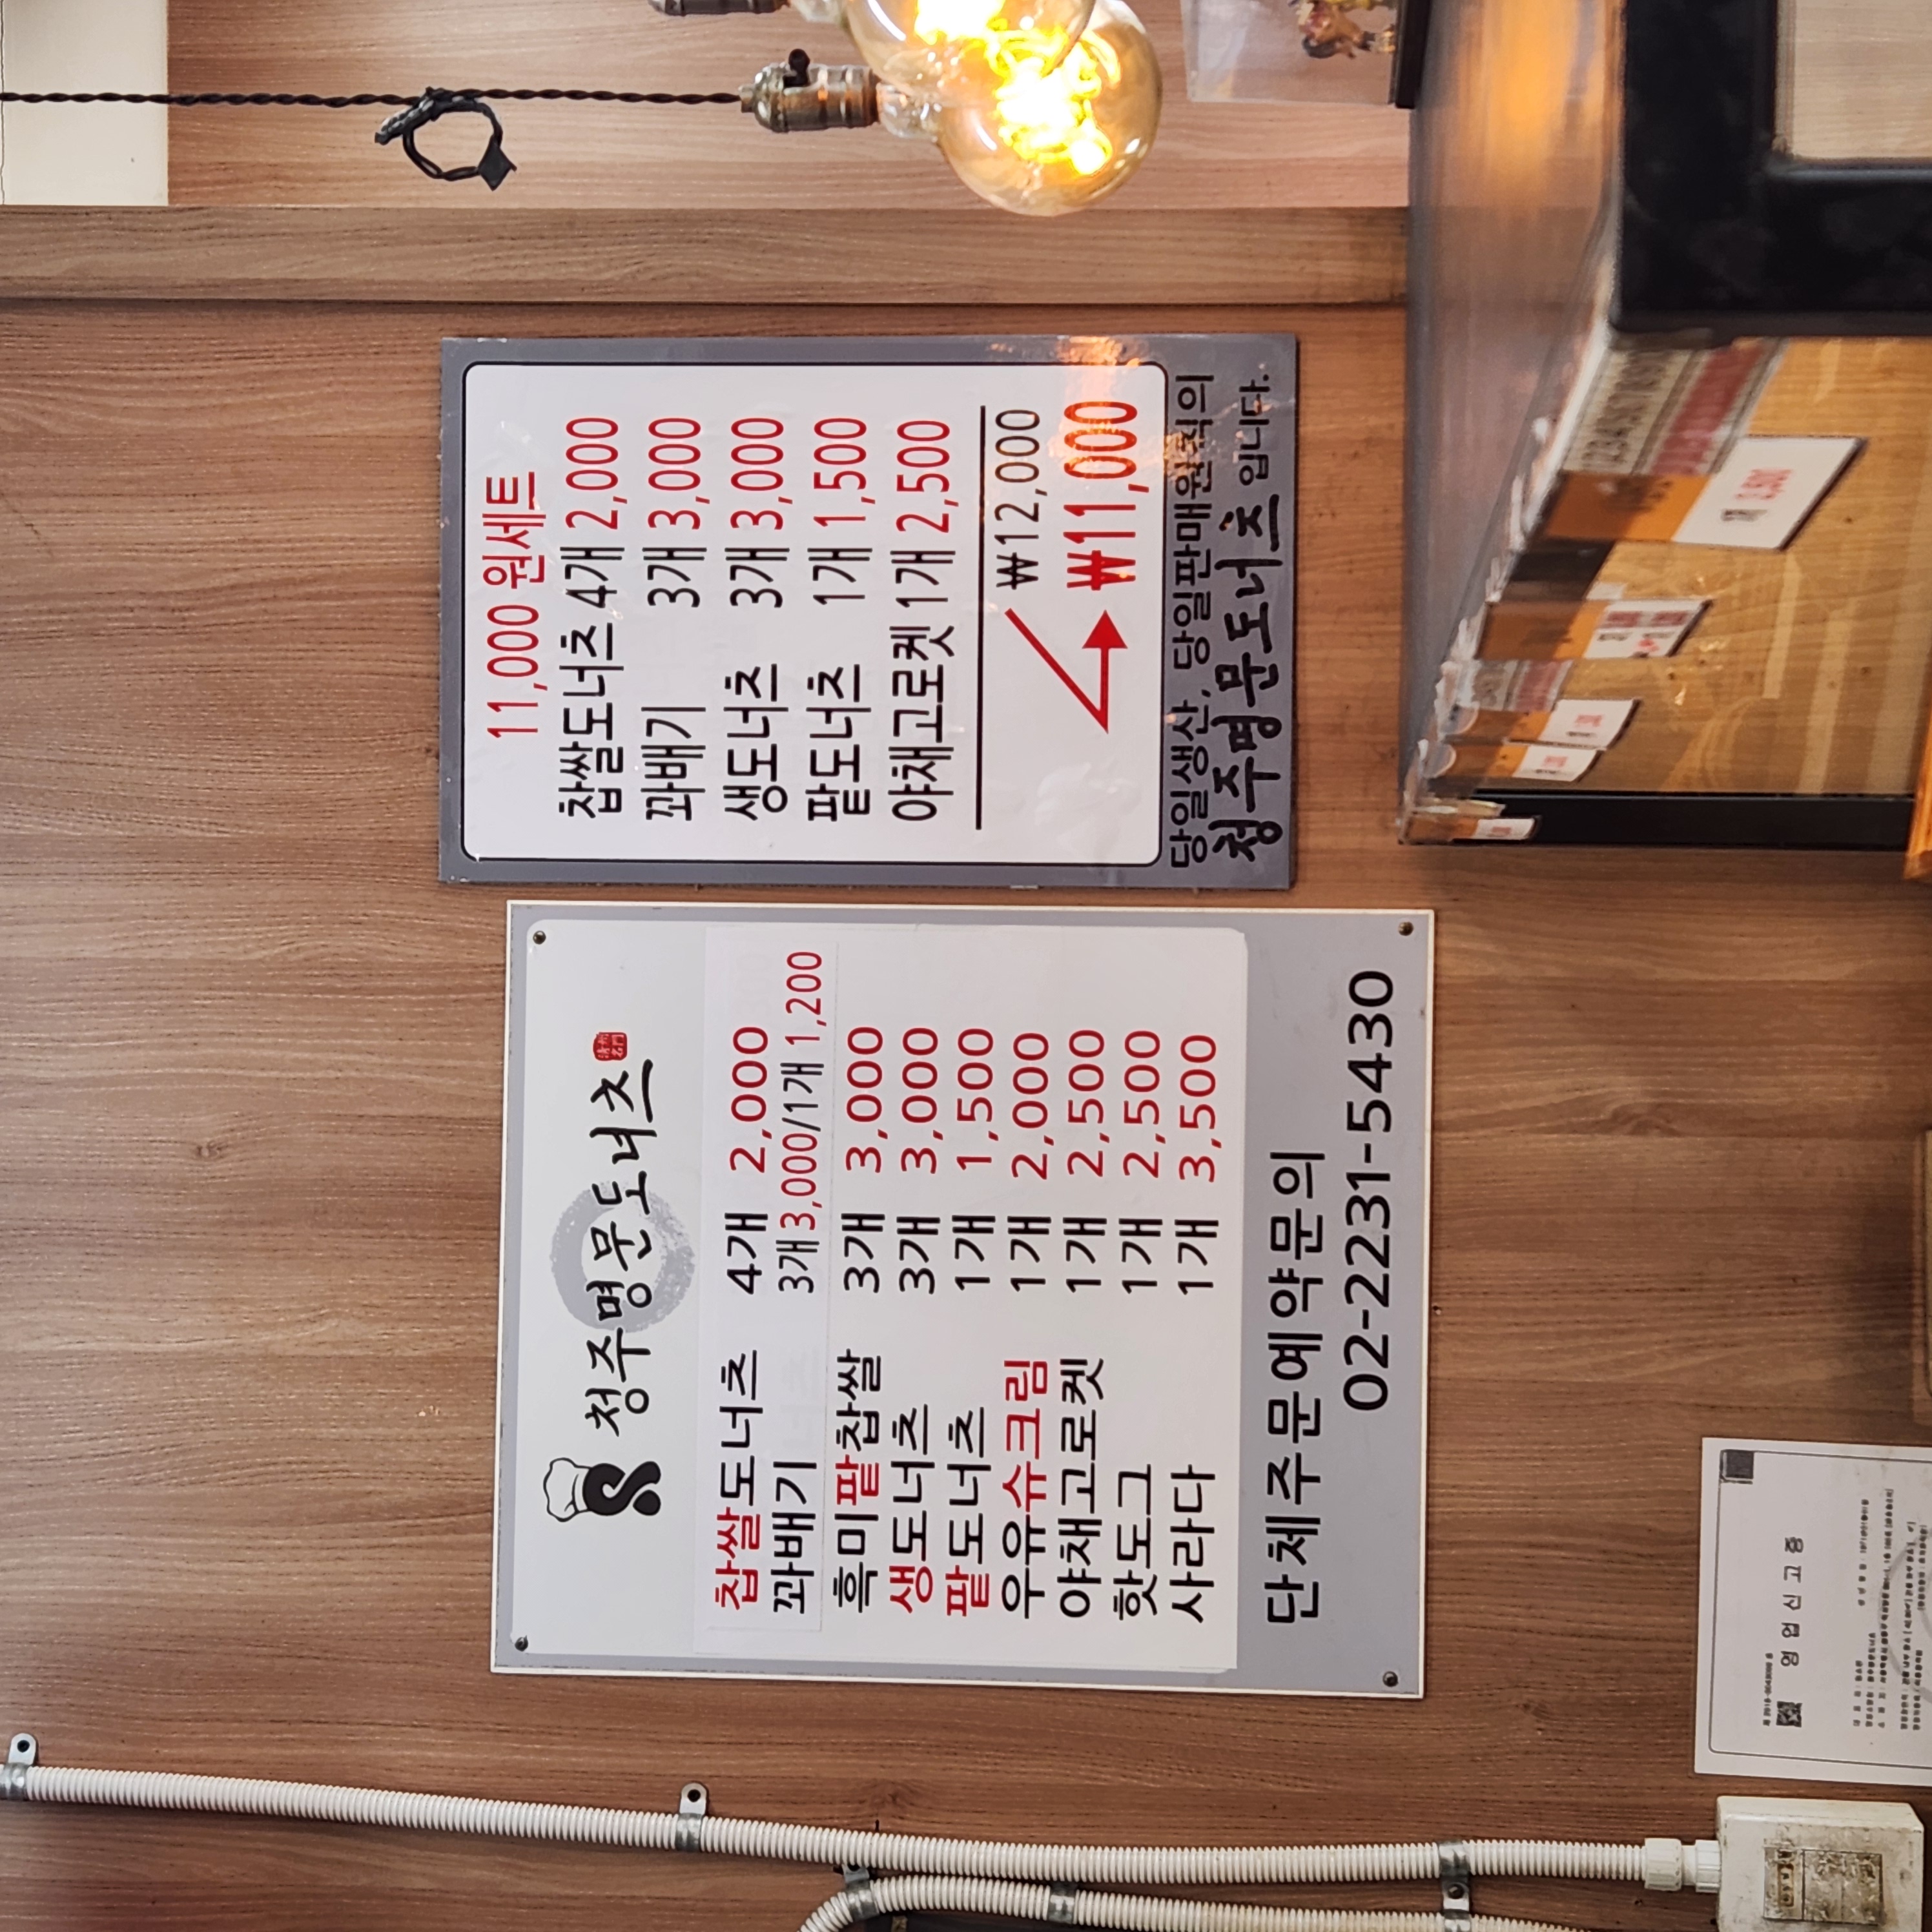 청주명문도너츠
찹쌀도너츠 4개 2,000
꽈배기 3개 3,000/1개 1,200
흑미팥찹쌀 3개 3,000
생도너츠 3개 3,000
팥도너츠 1개 1,500
우유슈크림 1개 2,000
야채고로켓 1개 2,500
핫도그 1개 2,500
사라다 1개 3,500
단체주문예약문의
02-2231-5430
11,000원세트
찹쌀도너츠 4개 2,000
꽈배기 3개 3,000
생도너츠 3개 3,000
팥도너츠 1개 1,500
야채고로켓 1개 2,500
₩12,000
₩11,000
당일생산, 당일판매원칙의
청주명문도너츠 입니다.
영업신고증